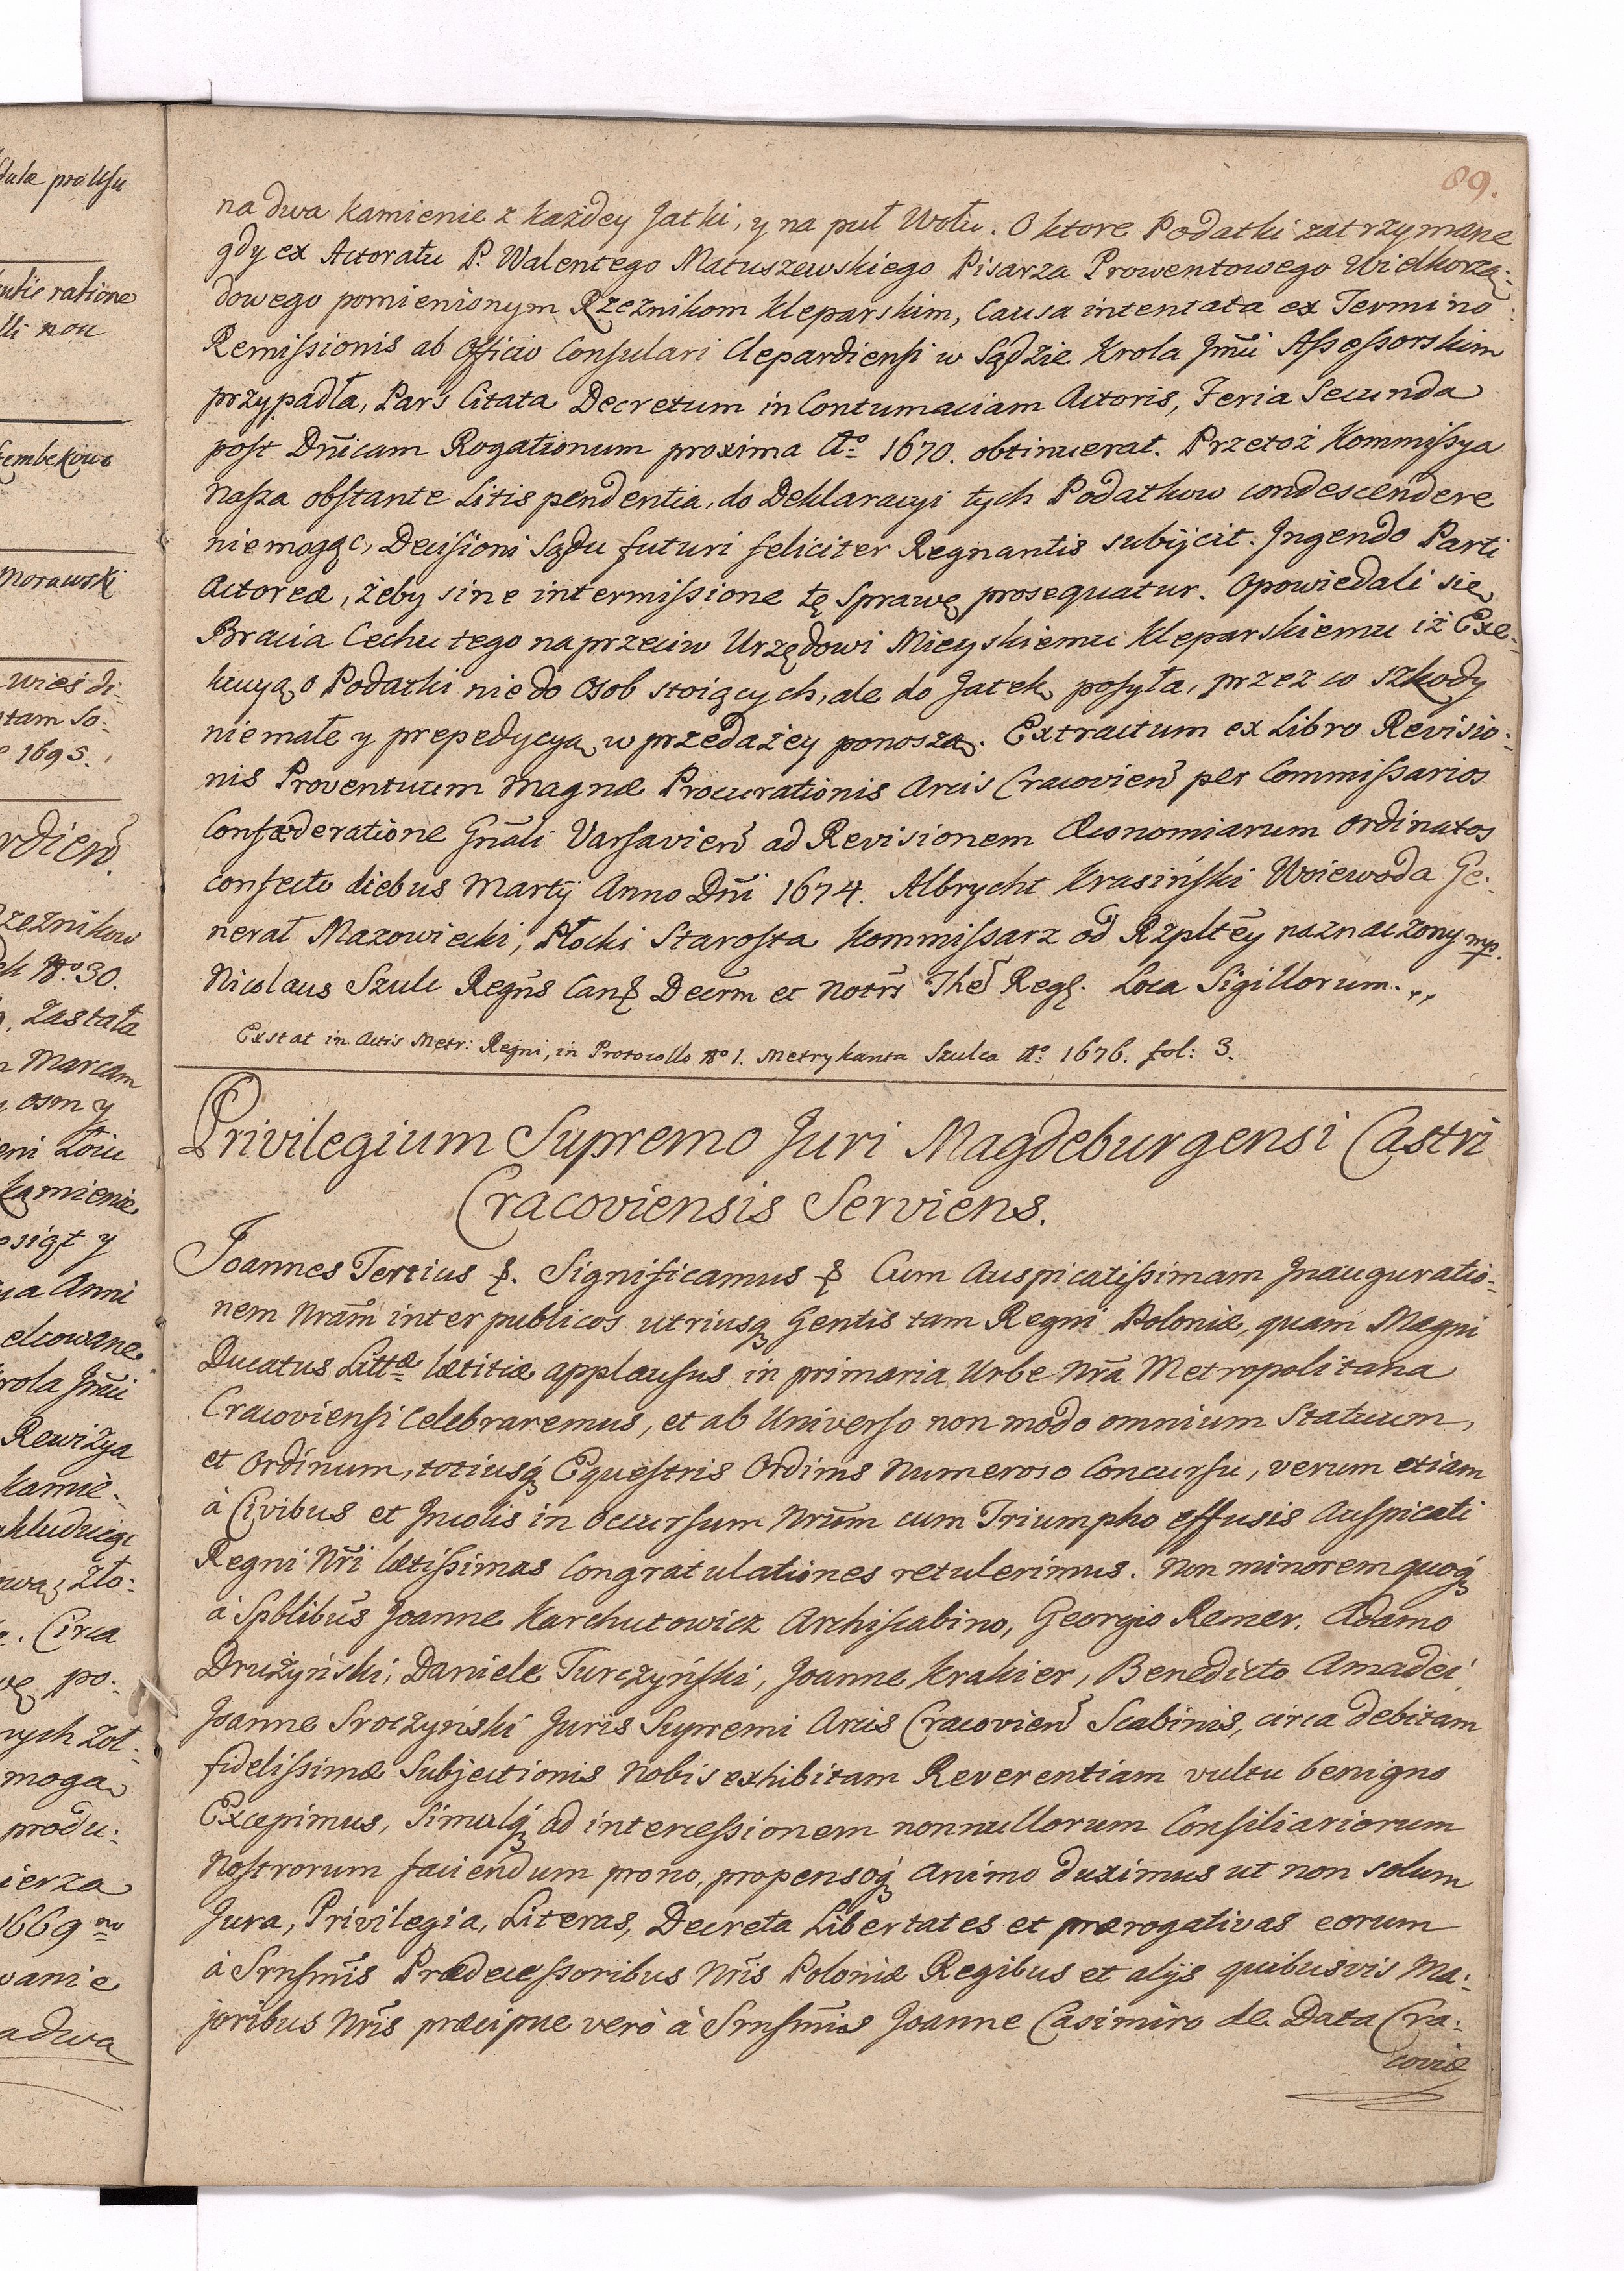 89.
na dwa Kamienie z każdey Jatki, y na puł Wołu. O ktore Podatki zatrzymane
gdy ex Actoratu P. Walentego Matuszewskiego Pisarza Prowentowego Wielkorzą:
dowego pomienionym Rzeznikom Kleparskim, Causa intentata ex Termino
Remissionis ab Officio Consulari Clepardiensi w Sądzie Krola Jm̃ci Assessorskim
przypadła, Pars Citata Decretum in Contumaciam Actoris, Feria Secunda
post Dñicam Rogationum proxima Aº 1670. obtinuerat. Przetoż Kommissya
nasza obstante Litis pendentia, do Deklaracyi tych Podatkow condescendere
niemogąc, Decisioni Sądu futuri feliciter Regnantis subijcit. Jngendo Parti
Actoreæ, żeby sine intermissione tę Sprawę prosequatur. Opowiedali się
Bracia Cechu tego naprzeciw Urzędowi Mieyskiemu Kleparskiemu iż Exe:
kucyą o Podatki nie do Osob stoiących, ale do Jatek posyła, przez co szkody
niemałe y prepedycyą w przedażey ponoszą. Extractum ex Libro Revisio:
nis Proventuum Magnæ Procurationis Arcis Cracovień per Commissarios
Confæderatione Gñali Varsavień ad Revisionem Œconomiarum ordinatos
confecto diebus Martij Anno Dñi 1674. Albrycht Krasiński Woiewoda Ge:
nerał Mazowiecki, Płocki Starosta Kommissarz od Rzpltey naznaczony mp.
Nicolaus Szulc Regñs Canc̃ Decrm et Notrs The Reg. Loca Sigillorum.
Exstat in Actis Metr: Regni, in Protocollo Nº 1. Metrykanta Szulca Aº 1676. fol: 3.
Privilegium Supremo Juri Magdeburgensi Castri
Cracoviensis Serviens.
Joannes Tertius &. Significamus & Cum Auspicatissimam Jnauguratio:
nem Nram̃ inter publicos utriusq Gentis tam Regni Poloniæ, quam Magni
Ducatus Littæ lætitiæ applausus in primaria Urbe Nrã Metropolitana
Cracoviensi Celebraremus, et ab Universo non modo omnium Statuum,
et Ordinum, totiusq́ Equestris Ordinis Numeroso Concursu, verum etiam
à Civibus et Jncolis in occursum Nrũm cum Triumpho effusis Auspicati
Regni Nrĩ lætissimas Congratulationes retulerimus. Non minorem quoq́
à Spblibus̃ Joanne Karchutowicz Archiscabino, Georgio Remer. Adamo
Drużyński, Daniele Turczyński, Joanne Krakier, Benedicto Amadei,
Joanne Sroczyński Juris Supremi Arcis Cracovień Scabinis, circa debitam
fidelissimæ Subjectionis Nobis exhibitam Reverentiam vultu benigno
Excepimus, Simulq́ ad intercessionem nonnullorum Consiliariorum
Nostrorum faciendum prono, propensoq́ animo duximus ut non solum
Jura, Privilegia, Literas, Decreta Libertates et prærogativas eorum
à Srnsmis̃ Prædecessoribus Nrĩs Poloniæ Regibus et alijs quibusvis Ma:
joribus Nrĩs præcipue verò à Srnsmis̃ Joanne Casimiro de Data Cra:
coviæ